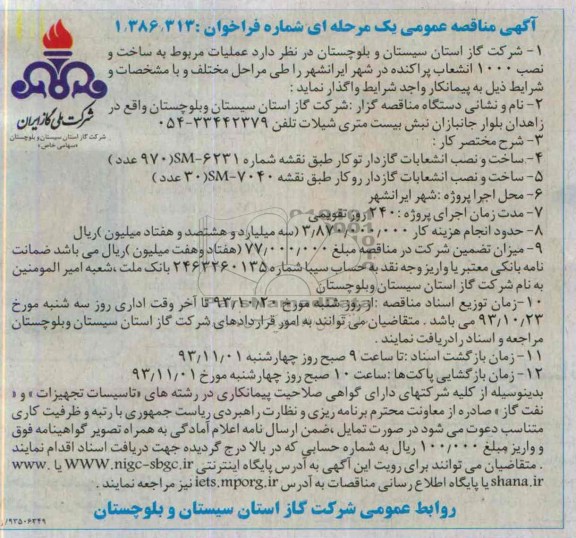 آگهی مناقصه عمومی یک مرحله ای/شماره فراخوان :۱/۳۸۶/۳۱۳
۱- شرکت گاز استان سیستان و بلوچستان در نظر دارد عملیات مربوط به ساخت و
نصب ۱۰۰۰ انشعاب پراکنده در شهر ایرانشهر را طی مراحل مختلف و با مشخصات و
شرایط ذیل به پیمانکار واجد شرایط واگذار نماید :
۲- نام و نشانی دستگاه مناقصه گزار :شرکت گاز استان سیستان وبلوچستان واقع در
زاهدان بلوار جانبازان نبش بیست متری شیلات تلفن ۳۳۴۴۲۳۷۹-۰۵۴
۳- شرح مختصر کار :
۴- ساخت و نصب انشعابات گازدار تو کار طبق نقشه شماره SM-۶۲۳۱(۹۷۰ عدد )
۵- ساخت و نصب انشعابات گازدار رو کار طبق نقشه SM-۷۰۴۰(۳۰ عدد )
۶- محل اجرا پروژه :شهر ایرانشهر
۷- مدت زمان اجرای پروژه : ۲۴۰ روز تقویمی
۸- حدود انجام هزینه کار ۳/۸۷۰/۰۰۰/۰۰۰ (سه میلیارد و هشتصد و هفتاد میلیون )ریال
۹- میزان تضمین شرکت در مناقصه مبلغ ۷۷/۰۰۰/۰۰۰ (هفتاد وهفت میلیون )ریال می باشد ضمانت
نامه بانکی معتبر یا واریز وجه نقد به حساب سیبا شماره ۲۴۶۳۲۶۰۱۳۵ بانک ملت ،شعبه امیر المومنین
به نام شرکت گاز استان سیستان وبلوچستان
۱۰-زمان توزیع اسناد مناقصه :از روز شنبه مورخ ۹۳/۱۰/۲۰ تا آخر وقت اداری روز سه شنبه مورخ
۹۳/۱۰/۲۳ می باشد . متقاضیان می توانند به امور قراردادهای شرکت گاز استان سیستان وبلوچستان
مراجعه و اسناد را دریافت نمایند .
۱۱- زمان بازگشت اسناد :تا ساعت ۹ صبح روز چهارشنبه ۹۳/۱۱/۰۱
۱۲- زمان بازگشایی پاکت‌ها :ساعت ۱۰ صبح روز چهارشنبه مورخ ۹۳/۱۱/۰۱
بدینوسیله از کلیه شرکتهای دارای گواهی صلاحیت پیمانکاری در رشته های «تاسیسات تجهیزات » و «
نفت گاز » صادره از معاونت محترم برنامه ریزی و نظارت راهبردی ریاست جمهوری با رتبه و ظرفیت کاری
متناسب دعوت می شود در صورت تمایل ،ضمن ارسال نامه اعلام آمادگی به همراه تصویر گواهینامه فوق
و واریز مبلغ ۱۰۰/۰۰۰ ریال به شماره حسابی که در بالا درج گردیده جهت دریافت اسناد اقدام نمایند
. متقاضیان می توانند برای رویت این آگهی به آدرس پایگاه اینترنتی WWW.nigc-sbgc.ir یا www.
shana.ir یا پایگاه اطلاع رسانی مناقصات به آدرس iets.mporg.ir نیز مراجعه نمایند .
روابط عمومی شرکت گاز استان سیستان و بلوچستان
شرکت ملی گاز ایران
شرکت گاز استان سیستان و بلوچستان
(سهامی خاص)
۹۳۵۰۶۳۴۹/